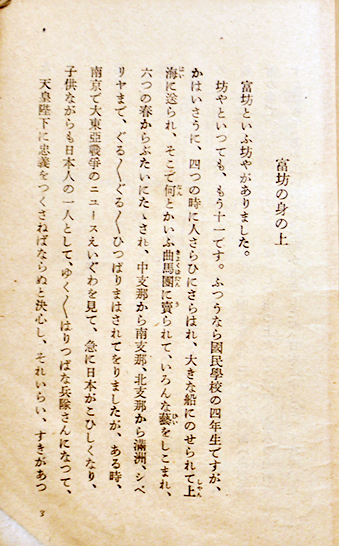 富坊の身の上
富坊といふ坊やがありました。
坊やといつても、もう十一です。ふつうなら國民學校の四年生ですが、
かはいさうに、四つの時に人さらひにさらはれ、大きな船にのせられて上
海に送られ、そこで何とかいふ曲馬團に賣られて、いろんな藝をしこまれ、
六つの春からぶたいにたゝされ、中支那から南支那、北支那から滿洲、シベ
リヤまで、ぐる〳〵ぐる〳〵ひつぱりまはされてをりましたが、ある時、
南京で大東亞戰爭のニュースえいぐわを見て、急に日本がこひしくなり、
子供ながらも日本人の一人として、ゆく〳〵はりつぱな兵隊さんになつて、
天皇陛下に忠義をつくさねばならぬと決心し、それいらい、すきがあつ
3